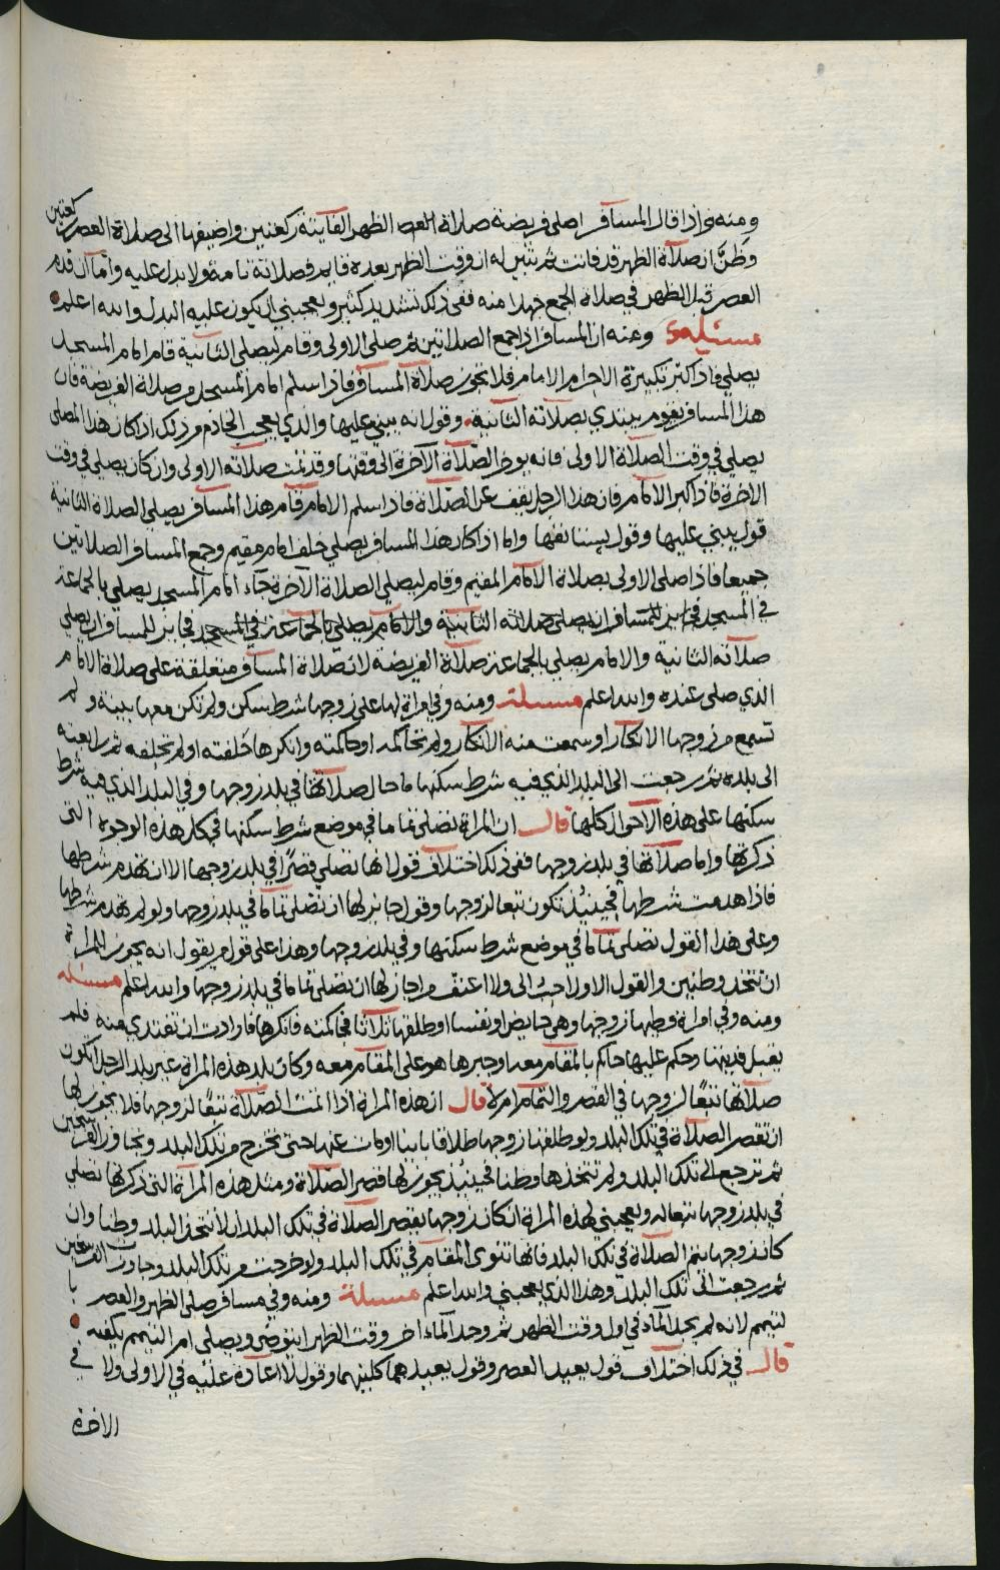 ومنه واذا قال المسافر اصلي فريضة صلاة العصر الظهر الفايتة ركعتين واضيفها الى صلاة العصر ركعتين
وظن ان صلاة الظهر قد فاتت ثم تبين له ان وقت الظهر بعده قايم فصلاته تامة ولا بدل عليه واما ان قدم
العصر قبل الظهر في صلاة الجمع جهلا منه ففي ذلك تشديد كثير ويعجبني ان يكون عليه البدل والله اعلم
مسئلة وعنه ان المسافر اذا جمع الصلاتين ثم صلى الاولى وقام ليصلي الثانية قام امام المسجد
يصلي فاذا كبر تكبيرة الاحرام الامام فلا تجوز صلاة المسافر فاذا سلم امام المسجد من صلاة الفريضة فان
هذا المسافر يقوم يبتدي بصلاته الثانية وقول انه يبني عليها والذي يعجب الخادم من ذلك اذا كان هذا المصلي
يصلي في وقت الصلاة الاولى فانه يوخر الصلاة الآخرة الى وقتها وقد تمت صلاته الاولى وان كان يصلي في وقت
الاخرة فاذا كبر الامام فان هذا الرجل يقف عن الصلاة فاذا سلم الامام قام هذا المسافر يصلي الصلاة الثانية
قول يبني عليها وقول يستانفها واما اذا كان هذا المسافر يصلي خلف امام مقيم وجمع المسافر الصلاتين
جميعا فاذا صلى الاولى بصلاة الامام المقيم وقام ليصلي الصلاة الآخرة جاء امام المسجد يصلي بالجماعة
في المسجد فجايز للمسافر ان يصلي صلاته الثانية والامام يصلي بالجماعة في المسجد فجايز للمسافر ان يصلي
صلاته الثانية والامام يصلي بالجماعة صلاة الفريضة لان صلاة المسافر متعلقة على صلاة الامام
الذي صلى عنده والله اعلم مسئلة ومنه وفي امراة لها على زوجها شرط سكن ولم تكن معها بينة ولم
تسمع من زوجها الانكار او سمعت منه الانكار ولم تحاكمه او حاكمته وانكرها حلفته او لم تحلفه ثم رابعته
الى بلده ثم رجعت الى البلد الذي فيه شرط سكنها ما حال صلاتها في بلد زوجها وفي البلد الذي فيه شرط
سكنها على هذه الاحوال كلها قال ان المراة تصلي تماما في موضع شرط سكنها في كل هذه الوجوه التي
ذكرتها واما صلاتها في بلد زوجها ففي ذلك اختلاف قول انها تصلي قصرا في بلد زوجها الا ان تهدم شرطها
فاذا هدمت شرطها فحينئذ تكون تبعا لزوجها وقول جايز لها ان تصلي تماما في بلد زوجها ولو لم تهدم شرطها
وعلى هذا القول تصلي تماما في موضع شرط سكنها وفي بلد زوجها وهذا على قول من يقول انه يجوز للمراة
ان تتخذ وطنين والقول الاول احب الى ولا اعنف من اجاز لها ان تصلي تماما في بلد زوجها والله اعلم مسئلة
ومنه وفي امراة وطيها زوجها وهي حايض او نفسا او طلقها ثلاثا فحاكمته فانكرها فارادت ان تفتدي منه فلم
يقبل فديتها وحكم عليها حاكم بالمقام معه او جبرها هو على المقام معه وكان بلد هذه المراة غير بلد الرجل اتكون
صلاتها تبعا لزوجها في القصر والتمام ام لا قال ان هذه المراة اذا اتمت الصلاة تبعا لزوجها فلا يجوز لها
ان تقصر الصلاة في تلك البلد ولو طلقها زوجها طلاقا باينا او مات عنها حتى تخرج من تلك البلد وتجاوز الفرسخين
ثم ترجع الى تلك البلد ولم تتخذها وطنا فحينئذ يجوز لها قصر الصلاة ومثل هذه المراة التي ذكرتها تصلي
في بلد زوجها تبعا له ويعجبني لهذه المراة ان كان زوجها يقصر الصلاة في تلك البلد ان لا تتخذ البلد وطنا وان
كان زوجها يتم الصلاة في تلك البلد فانها تنوى المقام في تلك البلد ولو خرجت من تلك البلد وجاوزت الفرسخين
ثم رجعت الى تلك البلد وهذا الذي يعجبني والله اعلم مسئلة ومنه وفي مسافر صلى الظهر والعصر با
لتيمم لانه لم يجد الماء في اول وقت الظهر ثم وجد الماء اخر وقت الظهر ايتوضى ويصلي ام التيمم يكفيه
قال في ذلك اختلاف قول يعيد العصر وقول يعيدهما كلتيهما وقول لا اعادة عليه في الاولى ولا في
الاخرة